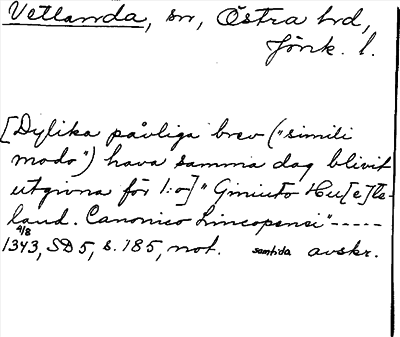 Vetlanda, sn, Östra hd,
Jönk. l.
[Dylika påvliga brev ("simili
modo") hava samma dag blivit
utgivna för 1:o] "Giniuto Hu[e]tte-
land. Canonico Lincopensi"-----
4/8
1343, SD 5, s. 185, not. samtida avskr.